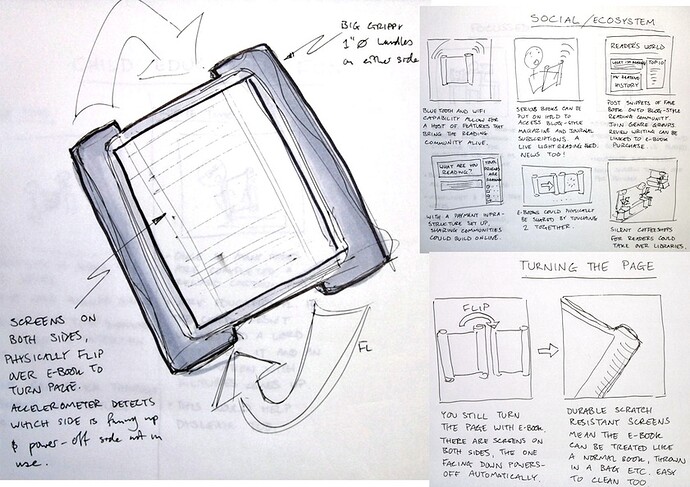 BIG GRIPPY
1" Ø handles
on either side
SCREENS ON
BOTH SIDES,
PHYSICALLY FLIP
OVER E-BOOK TO
TURN PAGE.
ACCELEROMETER DETECTS
WHICH SIDE IS facing up
& power-off side not in
use.
FL
SOCIAL/ECOSYSTEM
READER'S WORLD
WHAT I'M READING
TOP 10
MY READING
HISTORY
BLUETOOTH AND WIFI
CAPABILITY ALLOW FOR
A HOST OF FEATURES THAT
BRING THE READING
COMMUNITY ALIVE.
SERIOUS BOOKS CAN BE
PUT ON HOLD TO
ACCESS BLOG-STYLE
MAGAZINE AND JOURNAL
SUBSCRIPTIONS. A
LIVE LIGHT READING FEED.
NEWS TOO!
POST SNIPPETS OF FAVE
BOOK ONTO BLOG-STYLE
READING COMMUNITY.
JOIN GENRE GROUPS
REVIEW WRITING CAN BE
LINKED TO E-BOOK
PURCHASE.
WHAT ARE YOU
READING?
YOUR
FRIENDS
ARE
READING
WITH A PAYMENT INFRA-
STRUCTURE SET UP,
SHARING COMMUNITIES
COULD BUILD ONLINE.
E-BOOKS COULD PHYSICALLY
BE SHARED BY TOUCHING
2 TOGETHER.
SILENT COFFEESHOPS
FOR READERS COULD
TAKE OVER LIBRARIES.
TURNING THE PAGE
FLIP
YOU STILL TURN
THE PAGE WITH E-BOOK.
THERE ARE SCREENS ON
BOTH SIDES, THE ONE
FACING DOWN POWERS-
OFF AUTOMATICALLY.
DURABLE SCRATCH
RESISTANT SCREENS
MEAN THE E-BOOK
CAN BE TREATED LIKE
A NORMAL BOOK, THROWN
IN A BAG ETC. EASY
TO CLEAN TOO